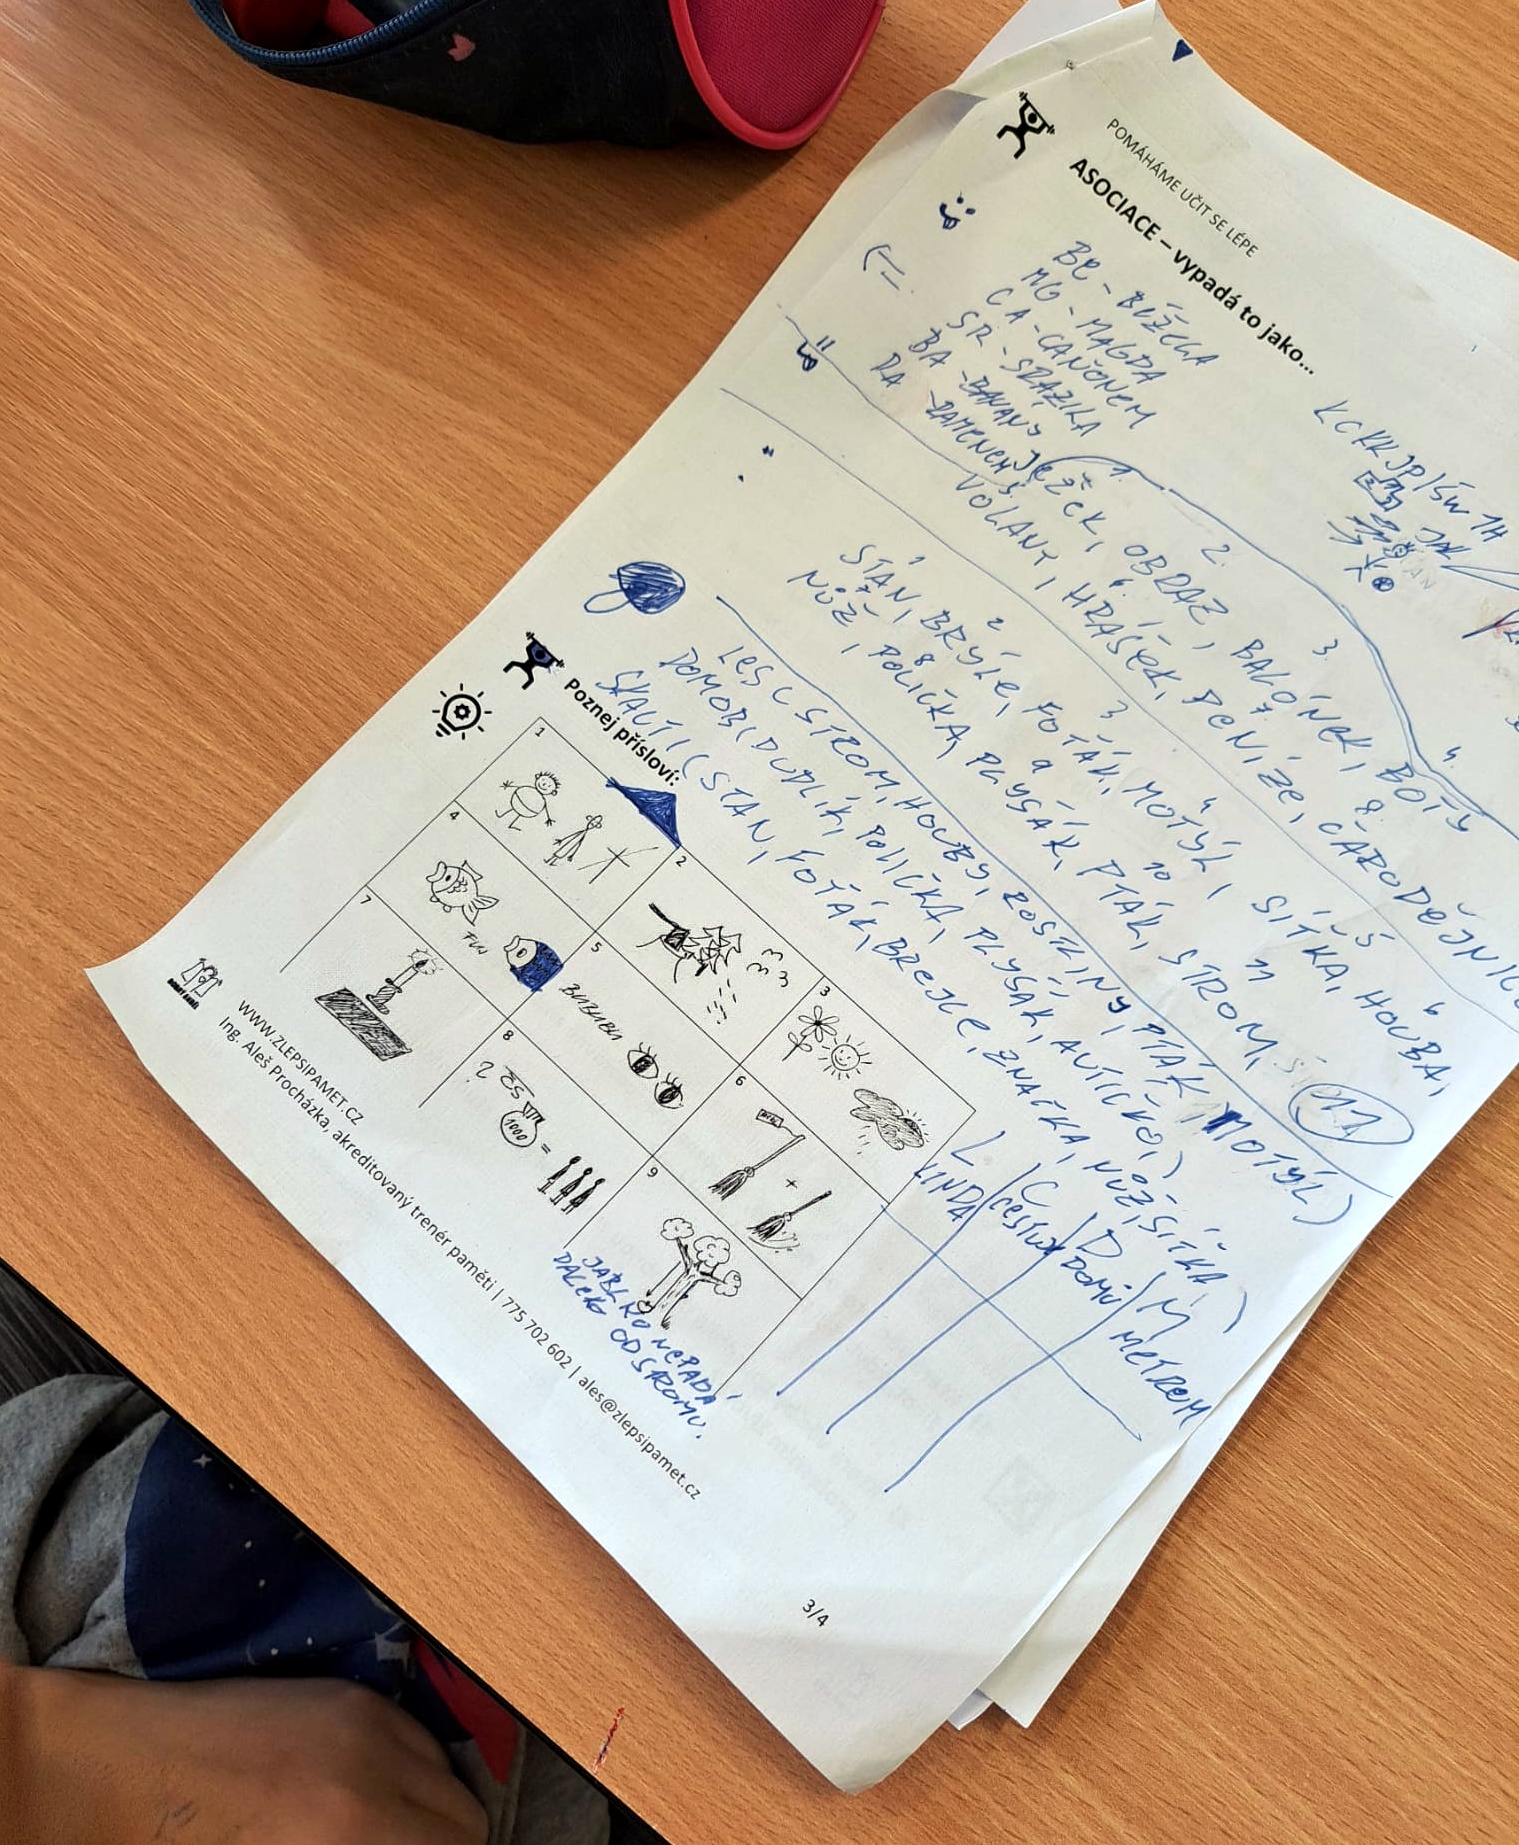 POMÁHÁME UČIT SE LÉPE
ASOCIACE – vypadá to jako...
BE - BĚŽELA
MG - MAGDA
CA - CANONEM
SR - SRAZILA
BA - BANÁNY
RA - RAMENEM
KCKKJP/ŠW1H
1 2. 3. 4.
JEŽEK, OBRAZ, BALÓNEK, BOTY
5. 6. 7. 8.
VOLANT, HRÁŠEK, PENÍZE, ČARODĚJNICE
1 2 3 4 5 6
STAN, BRÝLE, FOŤÁK, MOTÝL, SÍŤKA, HOUBA,
7 8 9 10 11
NŮŽ, POLIČKA, PLYŠÁK, PTÁK, STROM,
11
LES (STROM, HOUBY, ROSTLINY, PTÁK, MOTÝL)
DOMOB(DUDLÍK, POLIČKA, PLYŠÁK, AUTÍČKO,)
SKAUTI (STAN, FOŤÁK, BREJLE, ZNAČKA, NŮŽ, SÍŤKA)
Poznej přísloví:
1
2
3
4
FUJ
5
BUBUBU
6
7
8
? ZS
1000 =
9
+
JABLKO NEPADÁ
DALEKO OD STROMU.
L C D M
LINDA CESTUJE DOMŮ METREM
SMART KIDS
WWW.ZLEPSIPAMET.CZ
Ing. Aleš Procházka, akreditovaný trenér paměti | 775 702 602 | ales@zlepsipamet.cz
3/4